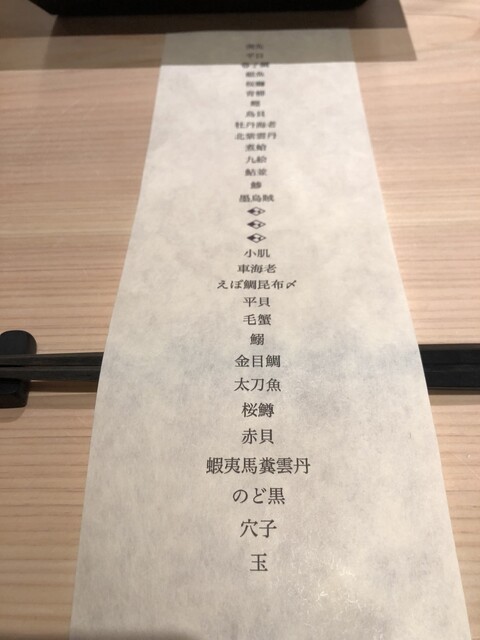 青柳
鳥貝
牡丹海老
北紫雲丹
煮蛤
九絵
鮎並
鯵
墨烏賊
小肌
車海老
えぼ鯛昆布〆
平貝
毛蟹
鰯
金目鯛
太刀魚
桜鱒
赤貝
蝦夷馬糞雲丹
のど黒
穴子
玉